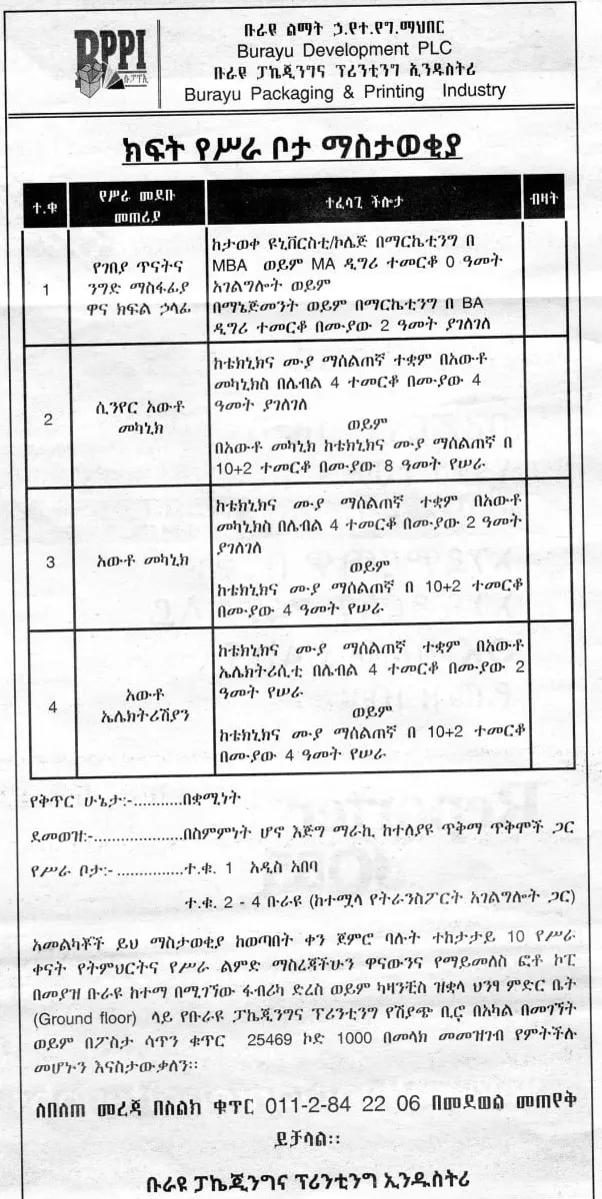 BPPI
ቡፓፕኢ
ቡራዩ ልማት ኃ.የተ.የግ.ማህበር
Burayu Development PLC
ቡራዩ ፓኬጂንግና ፕሪንቲንግ ኢንዱስትሪ
Burayu Packaging & Printing Industry
ክፍት የሥራ ቦታ ማስታወቂያ
ተ.ቁ
የሥራ መደቡ
መጠሪያ
ተፈላጊ ችሎታ
ብዛት
1
የገበያ ጥናትና
ንግድ ማስፋፊያ
ዋና ክፍል ኃላፊ
ከታወቀ ዩኒቨርስቲ/ኮሌጅ በማርኬቲንግ በ
MBA ወይም MA ዲግሪ ተመርቆ 0 ዓመት
አገልግሎት ወይም
በማኔጅመንት ወይም በማርኬቲንግ በ BA
ዲግሪ ተመርቆ በሙያው 2 ዓመት ያገለገለ
2
ሲንየር አውቶ
መካኒክ
ከቴክኒክና ሙያ ማሰልጠኛ ተቋም በአውቶ
መካኒክስ በሌብል 4 ተመርቆ በሙያው 4
ዓመት ያገለገለ
ወይም
በአውቶ መካኒክ ከቴክኒክና ሙያ ማሰልጠኛ በ
10+2 ተመርቆ በሙያው 8 ዓመት የሠራ
3
አውቶ መካኒክ
ከቴክኒክና ሙያ ማሰልጠኛ ተቋም በአውቶ
መካኒክስ በሌብል 4 ተመርቆ በሙያው 2 ዓመት
ያገለገለ
ወይም
ከቴክኒክና ሙያ ማሰልጠኛ በ 10+2 ተመርቆ
በሙያው 4 ዓመት የሠራ
4
አውቶ
ኤሌክትሪሽያን
ከቴክኒክና ሙያ ማሰልጠኛ ተቋም በአውቶ
ኤሌክትሪሲቲ በሌብል 4 ተመርቆ በሙያው 2
ዓመት የሠራ
ወይም
ከቴክኒክና ሙያ ማሰልጠኛ በ 10+2 ተመርቆ
በሙያው 4 ዓመት የሠራ
የቅጥር ሁኔታ:-...........በቋሚነት
ደመወዝ:-....................በስምምነት ሆኖ እጅግ ማራኪ ከተለያዩ ጥቅማ ጥቅሞች ጋር
የሥራ ቦታ:- ...............ተ.ቁ. 1 አዲስ አበባ
ተ.ቁ. 2 - 4 ቡራዩ (ከተሟላ የትራንስፖርት አገልግሎት ጋር)
አመልካቾች ይህ ማስታወቂያ ከወጣበት ቀን ጀምሮ ባሉት ተከታታይ 10 የሥራ
ቀናት የትምህርትና የሥራ ልምድ ማስረጃችሁን ዋናውንና የማይመለስ ፎቶ ኮፒ
በመያዝ ቡራዩ ከተማ በሚገኘው ፋብሪካ ድረስ ወይም ካዛንቺስ ዝቋላ ህንፃ ምድር ቤት
(Ground floor) ላይ የቡራዩ ፓኬጂንግና ፕሪንቲንግ የሽያጭ ቢሮ በአካል በመገኘት
ወይም በፖስታ ሳጥን ቁጥር 25469 ኮድ 1000 በመላክ መመዝገብ የምትችሉ
መሆኑን እናስታውቃለን፡፡
ስበለጠ መረጃ በስልክ ቁጥር 011-2-84 22 06 በመደወል መጠየቅ
ይቻላል፡፡
ቡራዩ ፓኬጂንግና ፕሪንቲንግ ኢንዱስትሪ